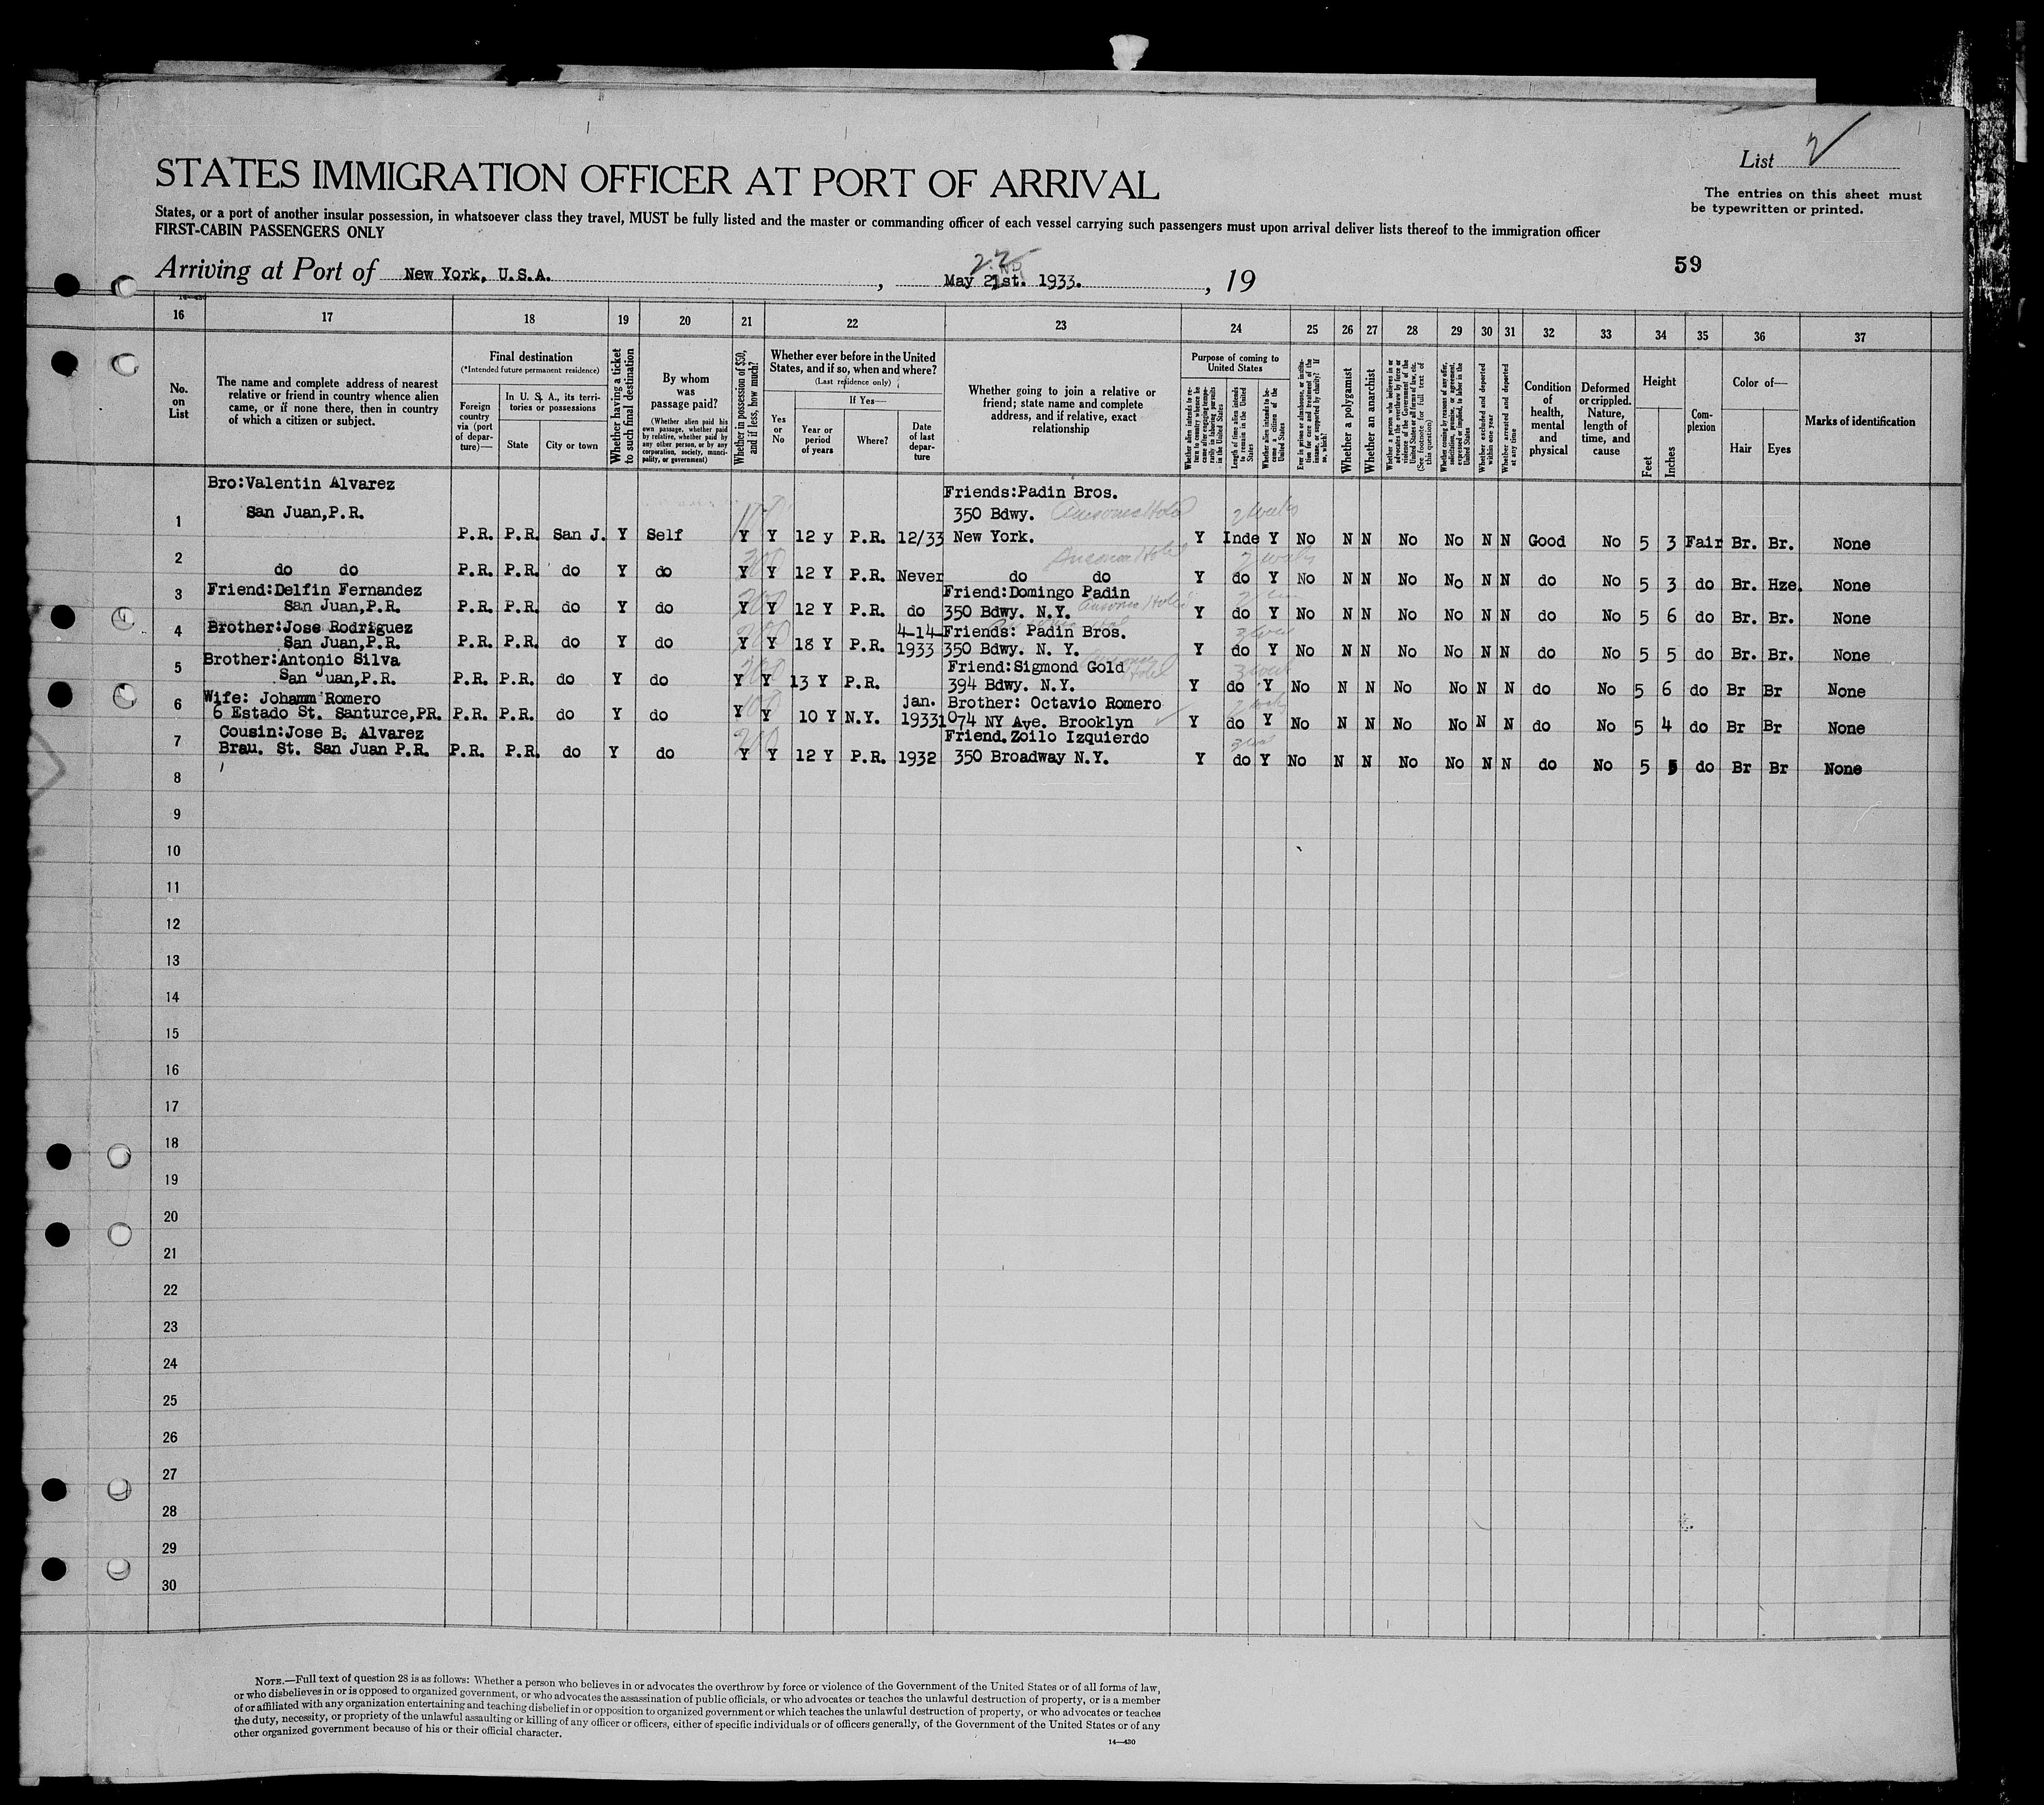 List 2
STATES IMMIGRATION OFFICER AT PORT OF ARRIVAL
The entries on this sheet must
be typewritten or printed.
States, or a port of another insular possession, in whatsoever class they travel, MUST be fully listed and the master or commanding officer of each vessel carrying such passengers must upon arrival deliver lists thereof to the immigration officer
FIRST-CABIN PASSENGERS ONLY
22
59
Arriving at Port of New York, U.S.A. , May 21st. 1933. , 19
14—430
16 17 18 19 20 21 22 23 24 25 26 27 28 29 30 31 32 33 34 35 36 37
No.
on
List
The name and complete address of nearest
relative or friend in country whence alien
came, or if none there, then in country
of which a citizen or subject.
Final destination
(*Intended future permanent residence)
Foreign
country
via (port
of depar-
ture)—
In U. S. A., its terri-
tories or possessions
State
City or town
Whether having a ticket
to such final destination
By whom
was
passage paid?
(Whether alien paid his
own passage, whether paid
by relative, whether paid by
any other person, or by any
corporation, society, munici-
pality, or government)
Whether in possession of $50,
and if less, how much?
Whether ever before in the United
States, and if so, when and where?
(Last residence only)
Yes
or
No
If Yes—
Year or
period
of years
Where?
Date
of last
depar-
ture
Whether going to join a relative or
friend; state name and complete
address, and if relative, exact
relationship
Purpose of coming to
United States
Whether alien intends to re-
turn to country whence he
came after engaging tempo-
rarily in laboring pursuits
in the United States
Length of time alien intends
to remain in the United
States
Whether alien intends to be-
come a citizen of the
United States
Ever in prison or almshouse, or institu-
tion for care and treatment of the
insane, or supported by charity? If
so, which?
Whether a polygamist
Whether an anarchist
Whether a person who believes in or
advocates the overthrow by force or
violence of the Government of the
United States or all forms of law, etc.
(See footnote for full text of
this question)
Whether coming by reason of any offer,
solicitation, promise, or agreement,
expressed or implied, to labor in the
United States
Whether excluded and deported
within one year
Whether arrested and deported
at any time
Condition
of
health,
mental
and
physical
Deformed
or crippled.
Nature,
length of
time, and
cause
Height
Feet
Inches
Com-
plexion
Color of—
Hair
Eyes
Marks of identification
Bro:Valentin Alvarez
Friends:Padin Bros.
San Juan,P.R. 350 Bdwy.
1 P.R. P.R. San J. Y Self 100 Y Y 12 y P.R. 12/33 New York. 2 weeks Y Inde Y No N N No No N N Good No 5 3 Fair Br. Br. None
2 do do P.R. P.R. do Y do Y Y 12 Y P.R. Never do do 2 weeks Y do Y No N N No No N N do No 5 3 do Br. Hze. None
3 Friend:Delfin Fernandez Friend:Domingo Padin
San Juan,P.R. P.R. P.R. do Y do 200 Y Y 12 Y P.R. do 350 Bdwy. N.Y. Y do Y No N N No No N N do No 5 6 do Br. Br. None
4 Brother:Jose Rodriguez 4-14- Friends: Padin Bros.
San Juan,P.R. P.R. P.R. do Y do Y Y 18 Y P.R. 1933 350 Bdwy. N. Y. Y do Y No N N No No N N do No 5 5 do Br. Br. None
5 Brother:Antonio Silva Friend:Sigmond Gold
San Juan,P.R. P.R. P.R. do Y do Y Y 13 Y P.R. 394 Bdwy. N.Y. Y do Y No N N No No N N do No 5 6 do Br Br None
6 Wife: Johamm Romero jan. Brother: Octavio Romero
6 Estado St. Santurce,PR. P.R. P.R. do Y do 100 Y Y 10 Y N.Y. 1933 1074 NY Ave. Brooklyn Y do Y No N N No No N N do No 5 4 do Br Br None
7 Cousin:Jose B. Alvarez Friend.Zoilo Izquierdo
Brau. St. San Juan P.R. P.R. P.R. do Y do 200 Y Y 12 Y P.R. 1932 350 Broadway N.Y. Y do Y No N N No No N N do No 5 5 do Br Br None
8
9
10
11
12
13
14
15
16
17
18
19
20
21
22
23
24
25
26
27
28
29
30
NOTE.—Full text of question 28 is as follows: Whether a person who believes in or advocates the overthrow by force or violence of the Government of the United States or of all forms of law,
or who disbelieves in or is opposed to organized government, or who advocates the assassination of public officials, or who advocates or teaches the unlawful destruction of property, or is a member
of or affiliated with any organization entertaining and teaching disbelief in or opposition to organized government or which teaches the unlawful destruction of property, or who advocates or teaches
the duty, necessity, or propriety of the unlawful assaulting or killing of any officer or officers, either of specific individuals or of officers generally, of the Government of the United States or of any
other organized government because of his or their official character.
14—430